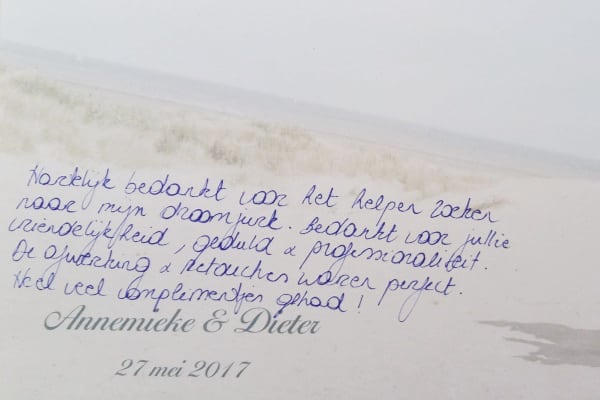 Hartelijk bedankt voor het helpen zoeken
naar mijn droomjurk. Bedankt voor jullie
vriendelijkheid, geduld & professionaliteit.
De afwerking & retouches waren perfect.
Heel veel complimentjes gehad!
Annemieke & Dieter
27 mei 2017